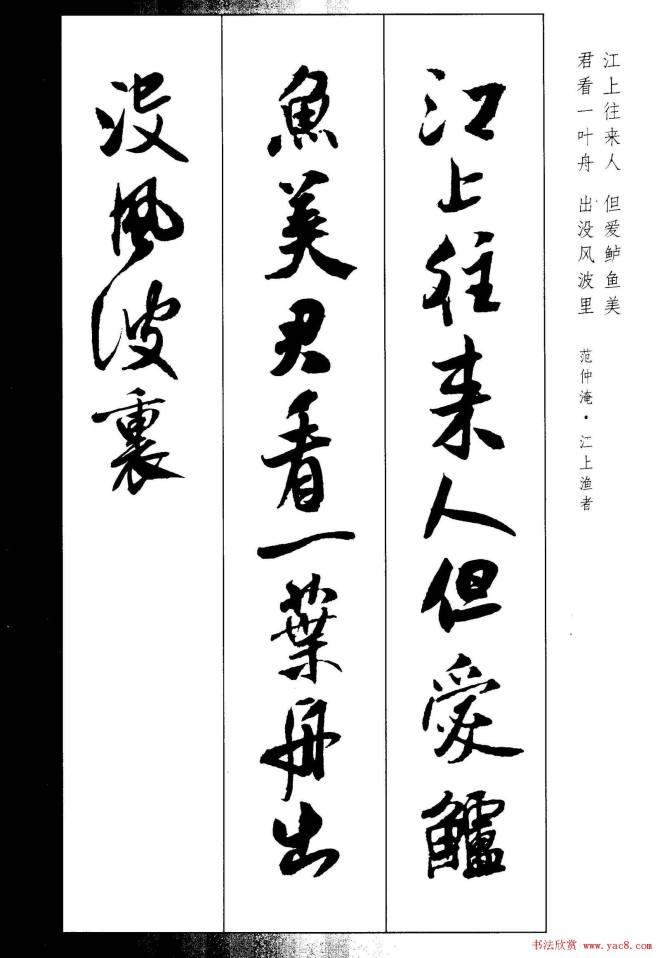 江上往来人 但爱鲈鱼美
君看一叶舟 出没风波里
范仲淹·江上渔者
江上往来人但愛鱸
魚美君看一葉舟出
没風波裏
书法欣赏 www.yac8.com